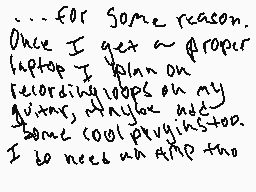 ... for some reason.
Once I get a proper
laptop I plan on
recording loops on my
guitar, maybe add
some cool plugins too.
I do need an Amp tho